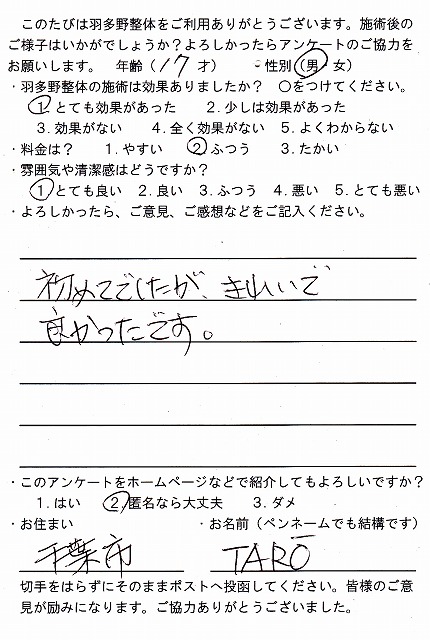 このたびは羽多野整体をご利用ありがとうございます。施術後の
ご様子はいかがでしょうか？よろしかったらアンケートのご協力を
お願いします。 年齢（17才） ・性別（男 女）
・羽多野整体の施術は効果ありましたか？ ○をつけてください。
1.とても効果があった 2.少しは効果があった
3.効果がない 4.全く効果がない 5.よくわからない
・料金は？ 1.やすい 2.ふつう 3.たかい
・雰囲気や清潔感はどうですか？
1.とても良い 2.良い 3.ふつう 4.悪い 5.とても悪い
・よろしかったら、ご意見、ご感想などをご記入ください。
初めてでしたが、きれいで
良かったです。
・このアンケートをホームページなどで紹介してもよろしいですか？
1.はい 2.匿名なら大丈夫 3.ダメ
・お住まい ・お名前（ペンネームでも結構です）
千葉市 TARŌ
切手をはらずにそのままポストへ投函してください。皆様のご意
見が励みになります。ご協力ありがとうございました。